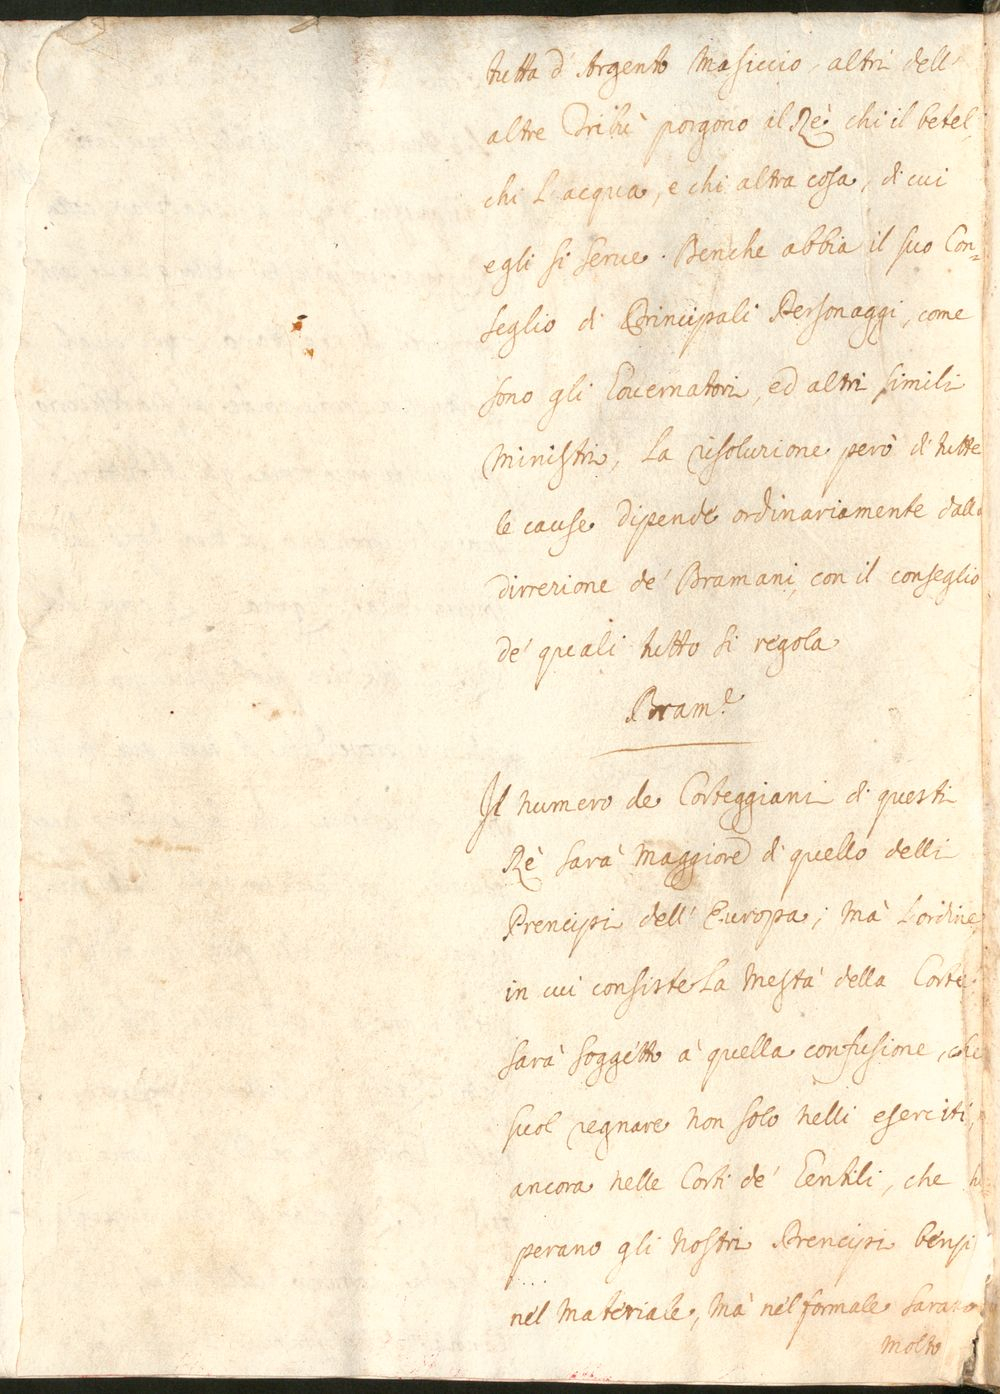 tutta d' Argento Masiccio, altri dell'
altre Tribù porgono al Rè chi il betel,
chi l'acqua, e chi altra cosa, di cui
egli si serue. Benche abbia il suo Con=
seglio di Principali Personaggi, come
sono gli Gouernatori, ed altri simili
Ministri, la risoluzione però di tutte
le cause dipende ordinariamente dalla
dirrezione de' Bramani, con il conseglio
de' quali tutto si regola
Bram.e
Il numero de Corteggiani di questi
Rè sarà maggiore di quello delli
Prencipi dell' Europa; mà l'ordine
in cui consiste la Mestà della Corte
sarà soggetto à quella confusione, che
suol regnare non solo nelli eserciti,
ancora nelle Corti de' Gentili, che
perano gli nostri Prencipi bensi
nel materiale, mà nel formale saranno
molto